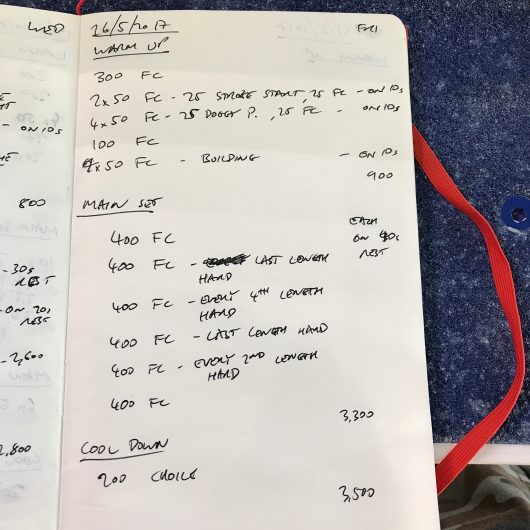 WED
26/5/2017 FRI
WARM UP
300 FC
2x50 FC - 25 STROKE START, 25 FC - ON 10s
4x50 FC - 25 DOGGY P. , 25 FC - ON 10s
100 FC
4x50 FC - BUILDING - ON 10s
900
MAIN SET
400 FC
EACH
ON 40s
REST
400 FC - LAST LENGTH
HARD
400 FC - EVERY 4TH LENGTH
HARD
400 FC - LAST LENGTH HARD
400 FC - EVERY 2ND LENGTH
HARD
400 FC
3,300
COOL DOWN
200 CHOICE
3,500
- ON 10s
800
- 30s
REST
- ON 20s
REST
- 2,600
2,800